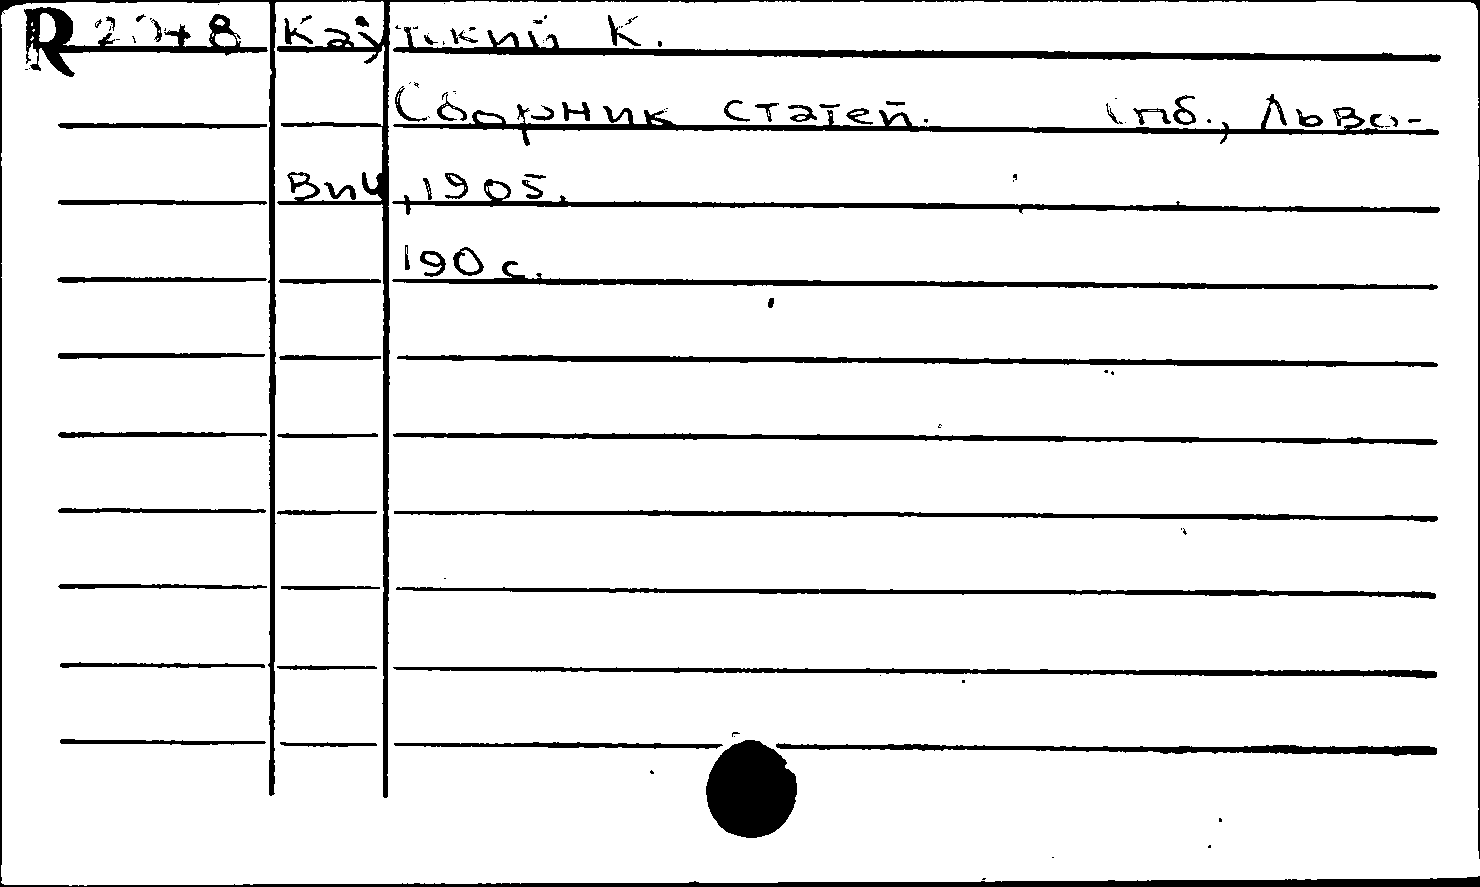 R Каутский К.
Сборник статей. Спб., Льво-
вич, 1905.
190 с.